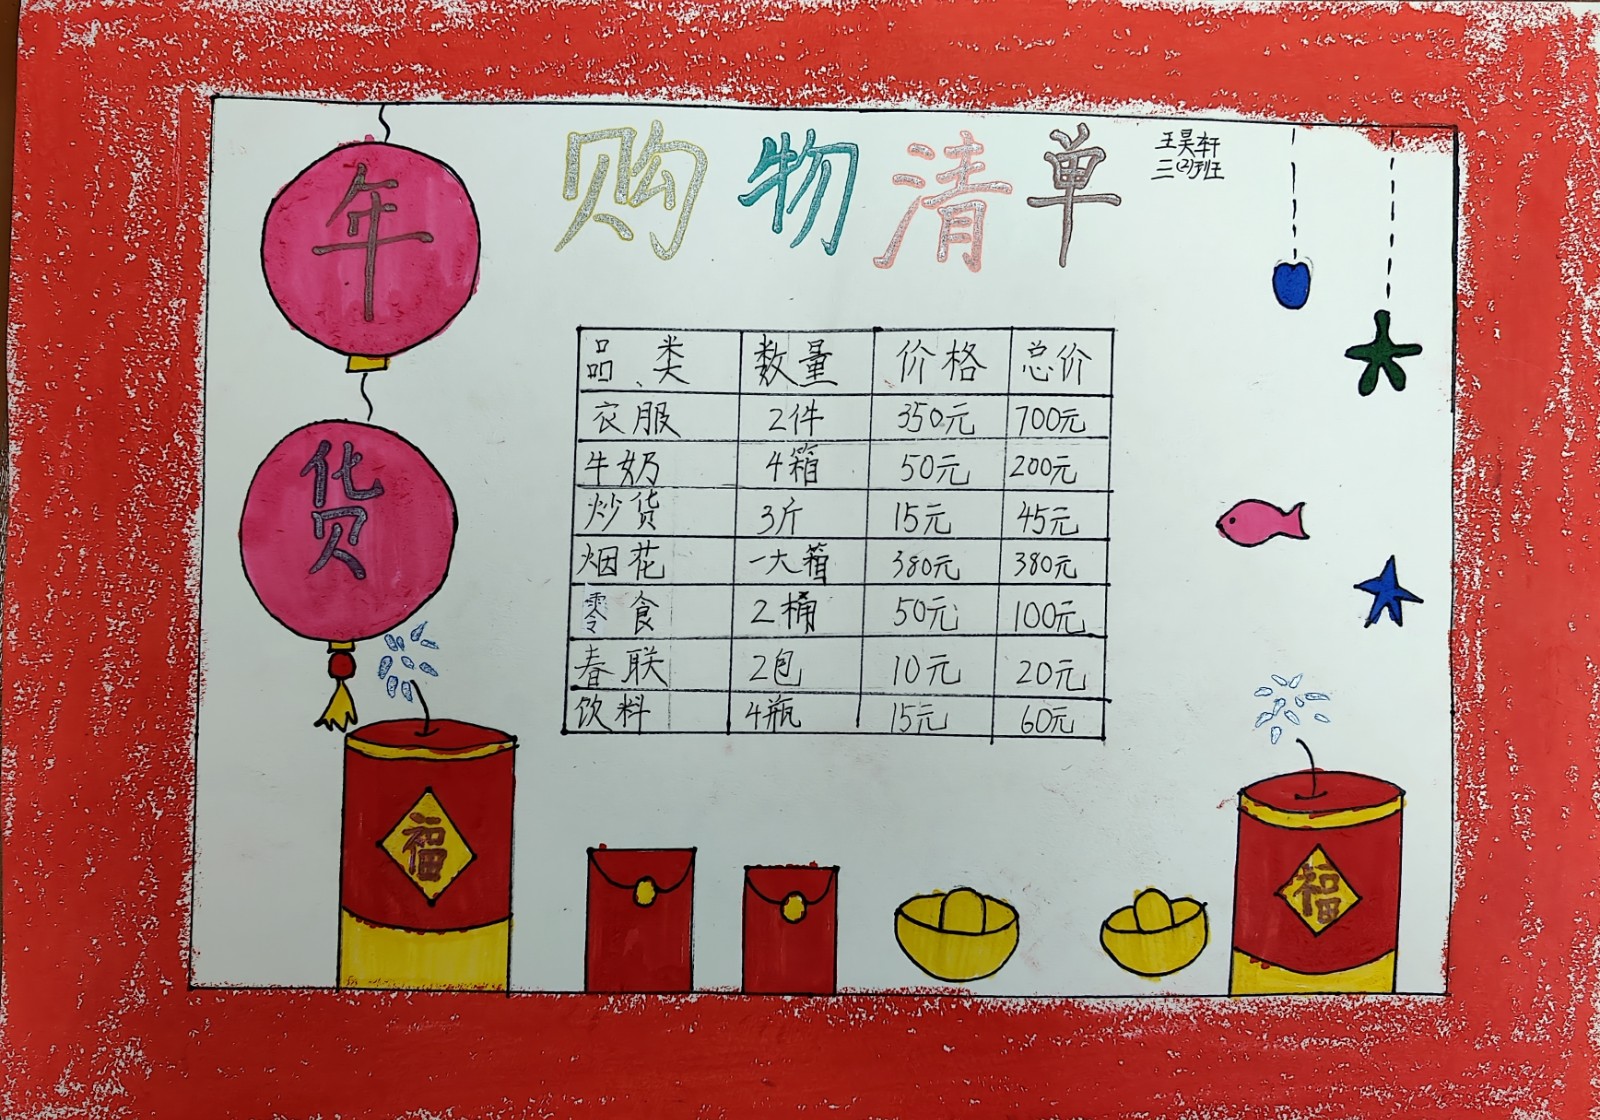 年
货
购物清单
王昊轩
三(2)班
品类 数量 价格 总价
衣服 2件 350元 700元
牛奶 4箱 50元 200元
炒货 3斤 15元 45元
烟花 一大箱 380元 380元
零食 2桶 50元 100元
春联 2包 10元 20元
饮料 4瓶 15元 60元
福
福